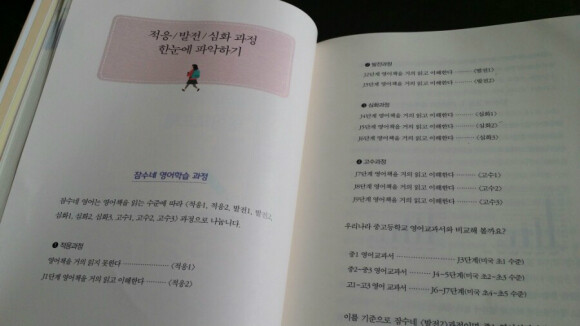 적응/발전/심화 과정
한눈에 파악하기
잠수네 영어학습 과정
잠수네 영어는 영어책을 읽는 수준에 따라 〈적응1, 적응2, 발전1, 발전2,
심화1, 심화2, 심화3, 고수1, 고수2, 고수3〉 과정으로 나눕니다.
❶ 적응과정
영어책을 거의 읽지 못한다 〈적응1〉
J1단계 영어책을 거의 읽고 이해한다 〈적응2〉
❷ 발전과정
J2단계 영어책을 거의 읽고 이해한다 〈발전1〉
J3단계 영어책을 거의 읽고 이해한다 〈발전2〉
❸ 심화과정
J4단계 영어책을 거의 읽고 이해한다 〈심화1〉
J5단계 영어책을 거의 읽고 이해한다 〈심화2〉
J6단계 영어책을 거의 읽고 이해한다 〈심화3〉
❹ 고수과정
J7단계 영어책을 거의 읽고 이해한다 〈고수1〉
J8단계 영어책을 거의 읽고 이해한다 〈고수2〉
J9단계 영어책을 거의 읽고 이해한다 〈고수3〉
우리나라 중고등학교 영어교과서와 비교해 볼까요?
중1 영어교과서 J3단계(미국 초1 수준)
중2~중3 영어교과서 J4~5단계(미국 초2~초3 수준)
고1~고3 영어 교과서 J6~J7단계(미국 초4~초5 수준)
이를 기준으로 잠수네 〈발전2〉과정이면 중